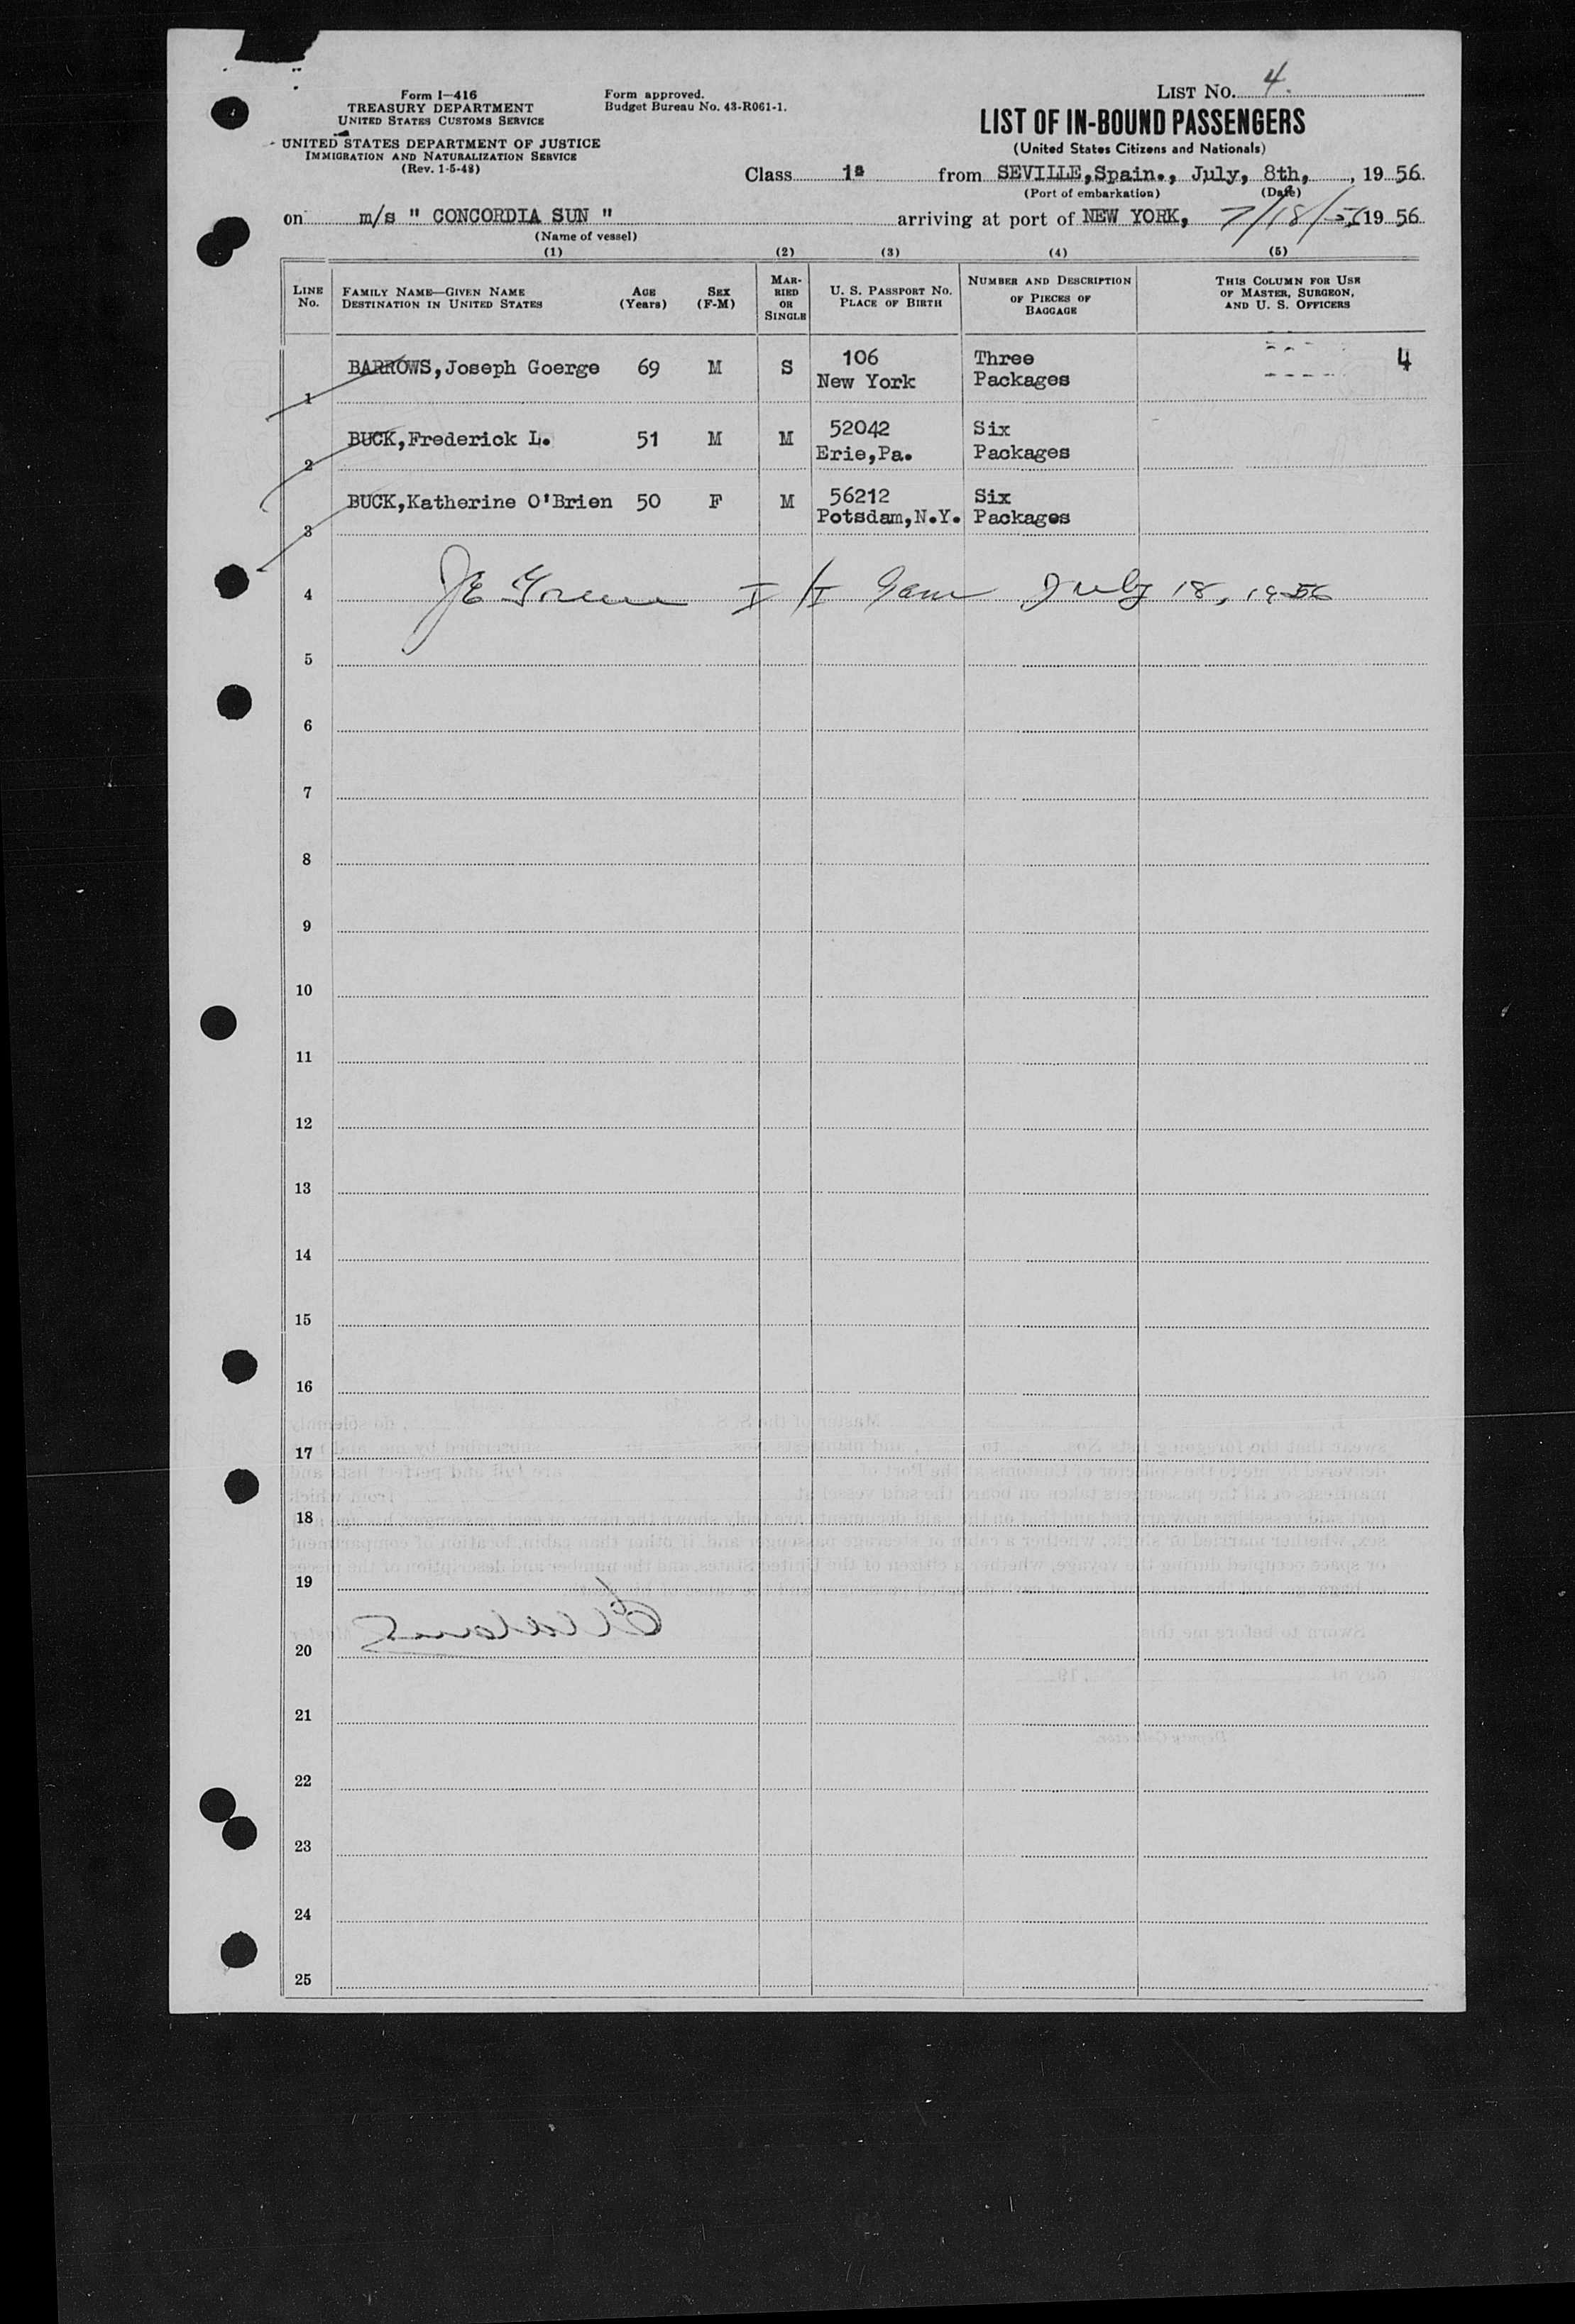 LIST NO. 4.
Form I-416
TREASURY DEPARTMENT
UNITED STATES CUSTOMS SERVICE
UNITED STATES DEPARTMENT OF JUSTICE
IMMIGRATION AND NATURALIZATION SERVICE
(Rev. 1-5-48)
Form approved.
Budget Bureau No. 43-R061-1.
LIST OF IN-BOUND PASSENGERS
(United States Citizens and Nationals)
Class 1ª from SEVILLE,Spain., July, 8th, , 19 56.
(Port of embarkation) (Date)
on m/s " CONCORDIA SUN " arriving at port of NEW YORK, 7/18/56 19 56
(Name of vessel)
(1) (2) (3) (4) (5)
LINE No. FAMILY NAME—GIVEN NAME DESTINATION IN UNITED STATES AGE (Years) SEX (F-M) MARRIED OR SINGLE U. S. PASSPORT NO. PLACE OF BIRTH NUMBER AND DESCRIPTION OF PIECES OF BAGGAGE THIS COLUMN FOR USE OF MASTER, SURGEON, AND U. S. OFFICERS
1 BARROWS,Joseph Goerge 69 M S 106 Three 4
New York Packages
2 BUCK,Frederick L. 51 M M 52042 Six
Erie,Pa. Packages
3 BUCK,Katherine O'Brien 50 F M 56212 Six
Potsdam,N.Y. Packages
4 JE Green I/I July 18, 1956
5
6
7
8
9
10
11
12
13
14
15
16
17
18
19
20
21
22
23
24
25